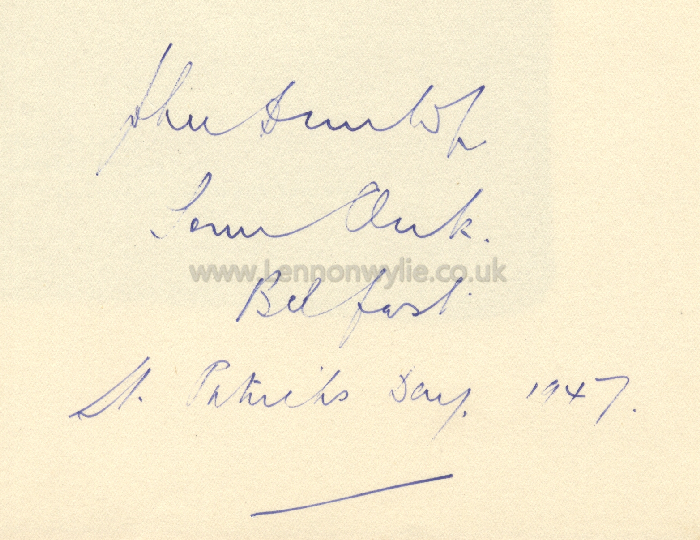 John Dunlop
Town Clerk.
www.Lennonwylie.co.uk
Belfast
St. Patricks Day. 1947.